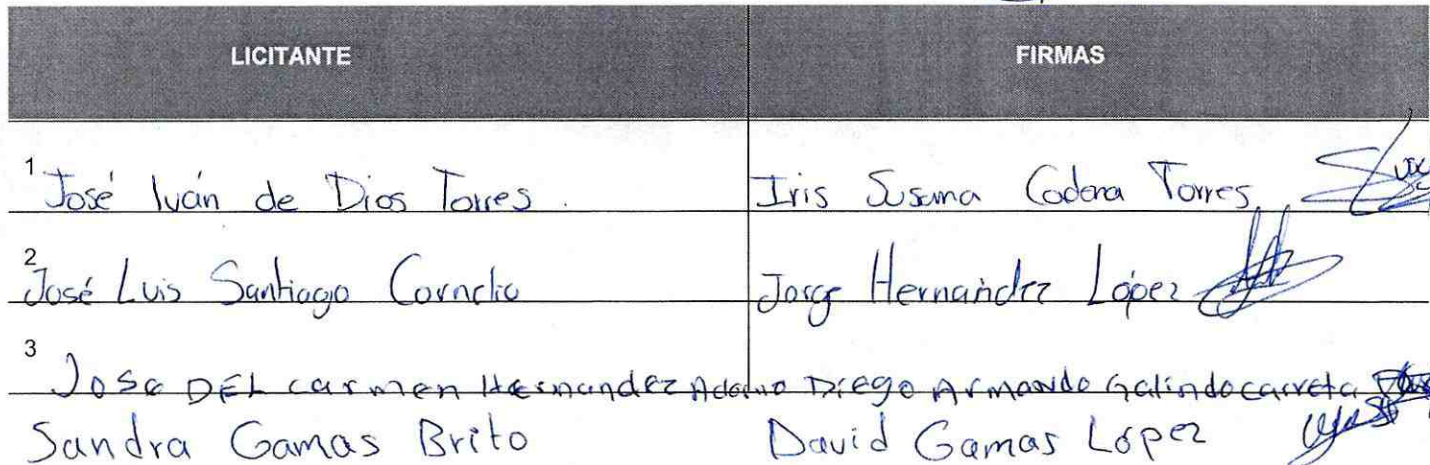 LICITANTE FIRMAS
1 José Iván de Dios Torres. Iris Susana Cadena Torres
2 José Luis Santiago Cornelio Jorge Hernández López
3 Jose DEL carmen Hernandez Adorno Diego Armando Galindo carreta
Sandra Gamas Brito David Gamas López